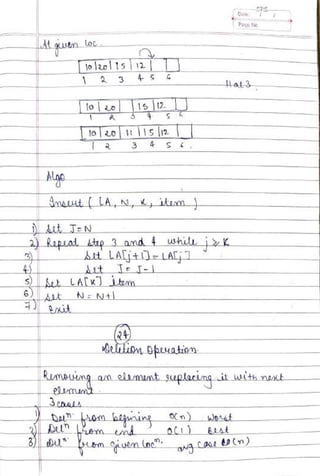 Date:
Page No.
At given loc.
10 20 15 12
1 2 3 4 5 6
11 at 3
10 20 15 12
1 2 3 4 5 6
10 20 11 15 12
1 2 3 4 5 6
Algo
Insert ( LA, N, K, item )
1) Set J=N
2) Repeat step 3 and 4 while j ≥ K
3) Set LA[j+1] = LA[j]
4) Set J = J-1
5) Set LA[K] item
6) Set N = N+1
7) Exit
24
Deletion Operation
Removing an element replacing it with next
element.
3 cases
1) Delⁿ from begining O(n) worst
2) Delⁿ from end O(1) Best
3) delⁿ from given locⁿ. avg case O(n)